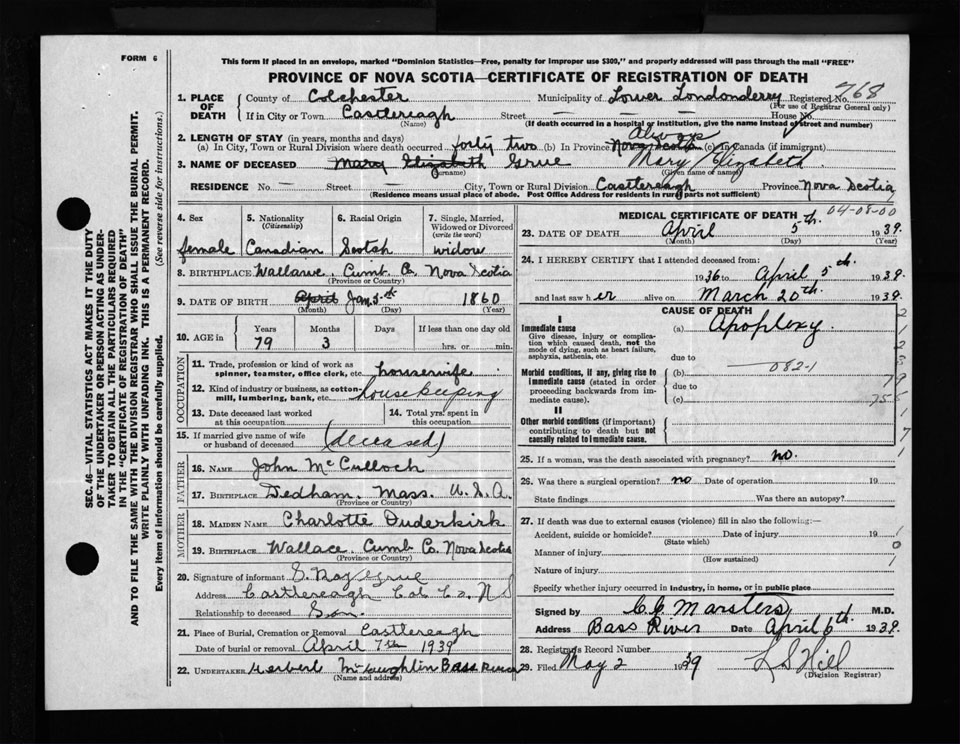 FORM 6
This form if placed in an envelope, marked "Dominion Statistics—Free, penalty for improper use $300," and properly addressed will pass through the mail "FREE"
PROVINCE OF NOVA SCOTIA—CERTIFICATE OF REGISTRATION OF DEATH
SEC. 46—VITAL STATISTICS ACT MAKES IT THE DUTY
OF THE UNDERTAKER OR PERSON ACTING AS UNDER-
TAKER TO OBTAIN ALL THE PARTICULARS REQUIRED
IN THE "CERTIFICATE OF REGISTRATION OF DEATH"
AND TO FILE THE SAME WITH THE DIVISION REGISTRAR WHO SHALL ISSUE THE BURIAL PERMIT.
WRITE PLAINLY WITH UNFADING INK. THIS IS A PERMANENT RECORD.
Every item of information should be carefully supplied. (See reverse side for instructions.)
1. PLACE OF DEATH County of Colchester Municipality of Lower Londonderry Registered No. 768
(For use of Registrar General only)
If in City or Town Castlereagh Street — House No.
(Name) (If death occurred in a hospital or institution, give the name instead of street and number)
2. LENGTH OF STAY (in years, months and days) Always
(a) In City, Town or Rural Division where death occurred forty two (b) In Province Nova Scotia (c) In Canada (if immigrant)
3. NAME OF DECEASED Mary Elizabeth Grue Mary Elizabeth
(Surname) (Given name or names)
RESIDENCE No. — Street — City, Town or Rural Division Castlereagh Province Nova Scotia
(Residence means usual place of abode. Post Office Address for residents in rural parts not sufficient)
4. Sex female
5. Nationality (Citizenship) Canadian
6. Racial Origin Scotch
7. Single, Married, Widowed or Divorced (write the word) widow
8. BIRTHPLACE Wallace, Cumb Co. Nova Scotia
(Province or Country)
9. DATE OF BIRTH April Jan. 5th 1860
(Month) (Day) (Year)
10. AGE in Years 79 Months 3 Days If less than one day old hrs. or min.
OCCUPATION
11. Trade, profession or kind of work as spinner, teamster, office clerk, etc. housewife
12. Kind of industry or business, as cotton-mill, lumbering, bank, etc. housekeeping
13. Date deceased last worked at this occupation
14. Total yrs. spent in this occupation
15. If married give name of wife or husband of deceased (deceased)
FATHER
16. NAME John McCulloch
17. BIRTHPLACE Dedham, Mass. U.S.A.
(Province or Country)
MOTHER
18. MAIDEN NAME Charlotte Ouderkirk
19. BIRTHPLACE Wallace, Cumb Co. Nova Scotia
(Province or Country)
20. Signature of informant S. Ray Grue
Address Castlereagh Col. Co. N S
Relationship to deceased Son.
21. Place of Burial, Cremation or Removal Castlereagh
Date of burial or removal April 7th 1939
22. UNDERTAKER Herbert McLaughlin Bass River
(Name and address)
MEDICAL CERTIFICATE OF DEATH 04-08-00
23. DATE OF DEATH April 5th. 1939.
(Month) (Day) (Year)
24. I HEREBY CERTIFY that I attended deceased from:
1936 to April 5th. 1939.
and last saw her alive on March 20th. 1939.
CAUSE OF DEATH
I
Immediate cause (a) Apoplexy.
Give disease, injury or complication which caused death, not the mode of dying, such as heart failure, asphyxia, asthenia, etc.
due to
Morbid conditions, if any, giving rise to immediate cause (stated in order proceeding backwards from immediate cause). (b) 082-1
due to
(c)
II
Other morbid conditions (if important) contributing to death but not causally related to immediate cause.
25. If a woman, was the death associated with pregnancy? no.
26. Was there a surgical operation? no Date of operation 19
State findings Was there an autopsy?
27. If death was due to external causes (violence) fill in also the following:—
Accident, suicide or homicide? Date of injury 19
(State which)
Manner of injury
(How sustained)
Nature of injury
Specify whether injury occurred in industry, in home, or in public place
Signed by C.C. Marsters M.D.
Address Bass River Date April 6th. 1939.
28. Registrar's Record Number
29. Filed May 2 1939 L S Hill
(Division Registrar)